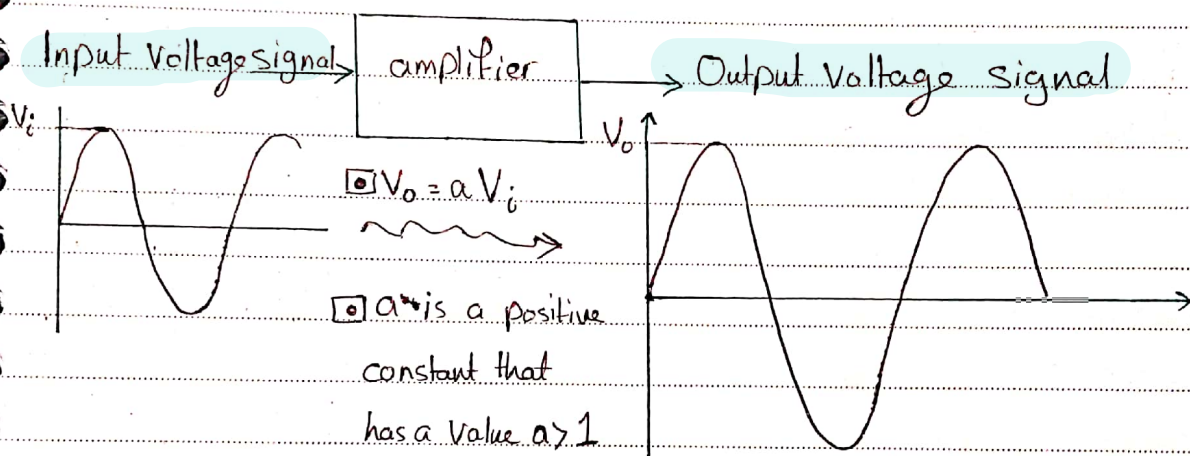 Input Voltage signal
amplifier
Output Voltage signal
Vᵢ
V₀
V₀ = a Vᵢ
a is a positive
constant that
has a value a>1